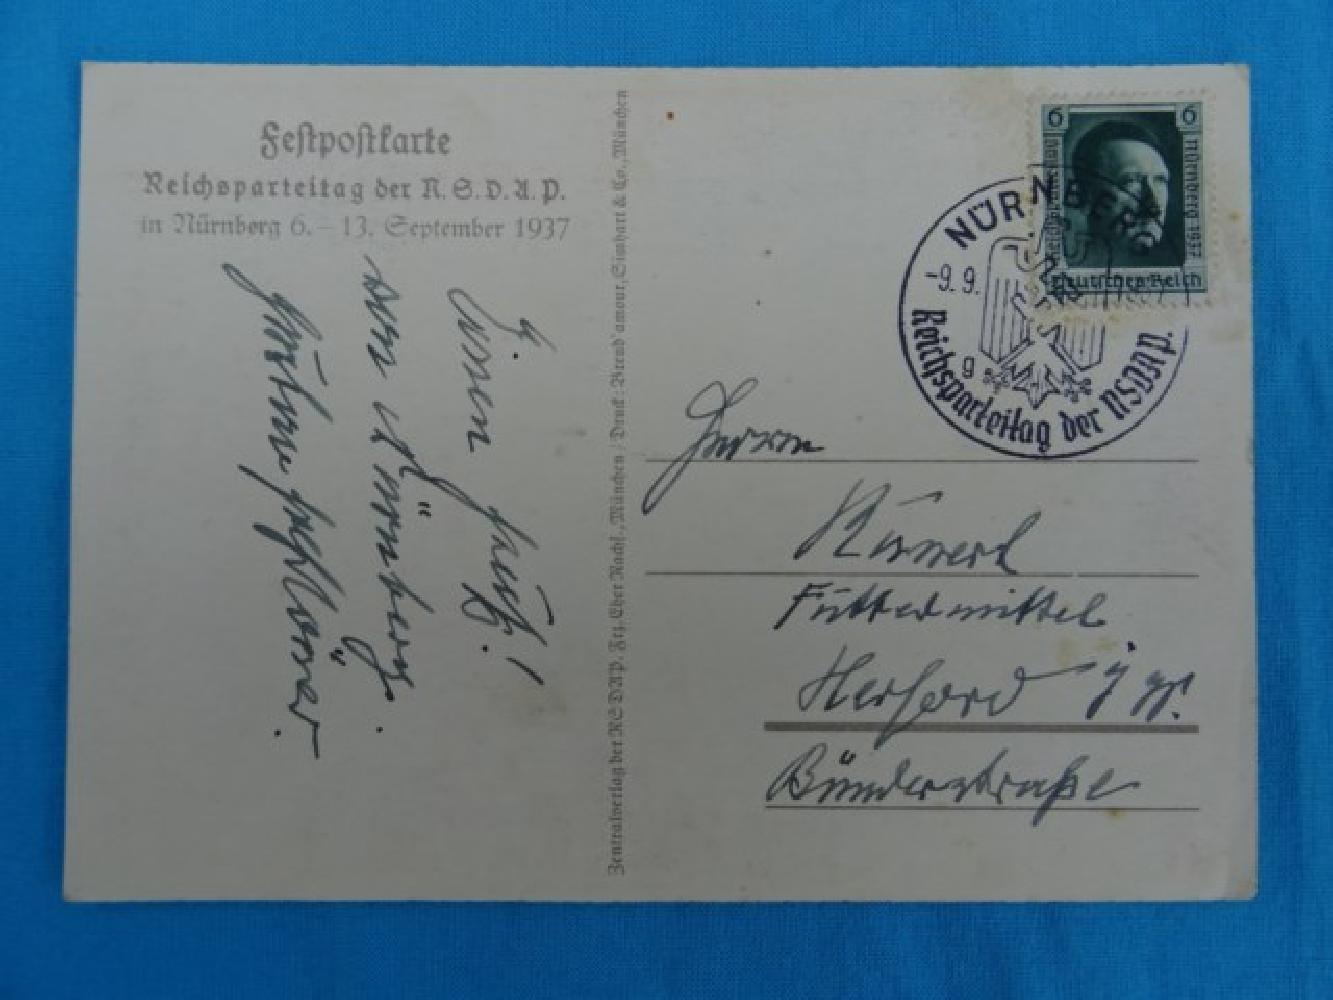 Festpostkarte
Reichsparteitag der N.S.D.A.P.
in Nürnberg 6. – 13. September 1937
Einen Gruß!
von Nürnberg.
Zentralverlag der NSDAP. Frz. Eher Nachf., München / Druck: Brend'amour, Simhart & Co., München
6 6
Nürnberg 1937
Reichsparteitag
Deutsches Reich
NÜRNBERG
-9.9.
g
Reichsparteitag der NSDAP.
Herrn
Futtermittel
Herford i/W.
Bünderstraße